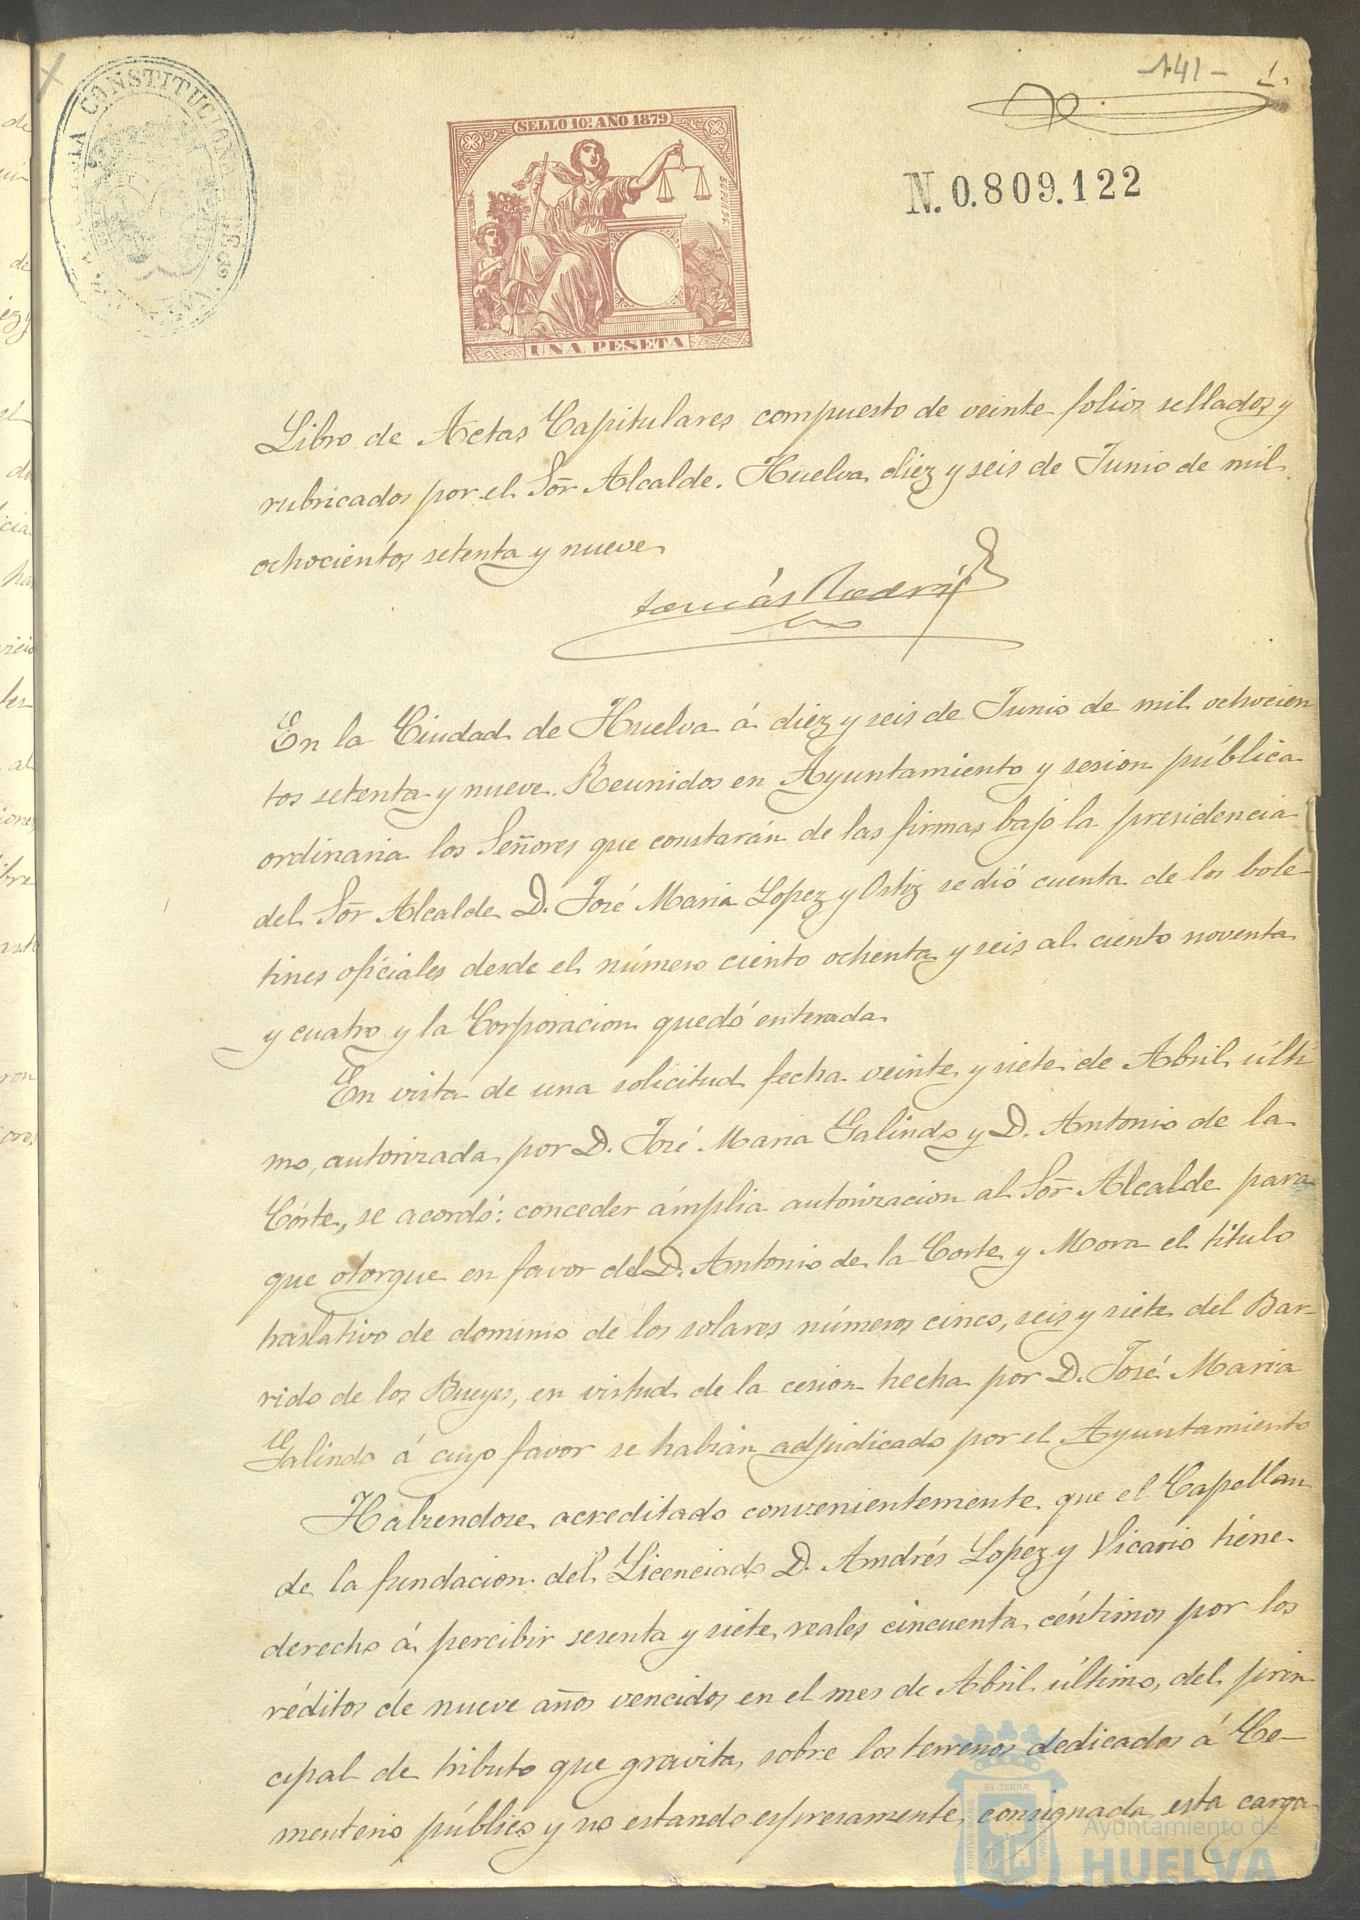 -141- 1.
ALCALDIA CONSTITUCIONAL DE
SELLO 10º AÑO 1879
N. 0.809.122
UNA PESETA
Libro de Actas Capitulares compuesto de veinte folios sellados y
rubricados por el Sor Alcalde. Huelva diez y seis de Junio de mil
ochocientos setenta y nueve
Tomás Rodri
En la Ciudad de Huelva á diez y seis de Junio de mil ochocien
tos setenta y nueve. Reunidos en Ayuntamiento y sesion pública
ordinaria los Señores que constarán de las firmas bajo la presidencia
del Sor Alcalde D. José Maria Lopez y Ortiz se dió cuenta de los bole-
tines oficiales desde el número ciento ochenta y seis al ciento noventa
y cuatro y la Corporacion quedó enterada.
En vista de una solicitud fecha veinte y siete de Abril últi
mo, autorizada por D. José Maria Galindo y D. Antonio de la
Córte, se acordó: conceder ámplia autorizacion al Sor Alcalde para
que otorgue en favor del D. Antonio de la Corte y Mora el título
traslativo de dominio de los solares números cinco, seis y siete del Bar-
rido de los Bueyes, en virtud de la cesion hecha por D. José Maria
Galindo á cuyo favor se habian adjudicado por el Ayuntamiento
Habiendose acreditado convenientemente que el Capellan
de la fundacion del Licenciado D. Andrés Lopez y Vicario tiene
derecho á percibir sesenta y siete reales cincuenta céntimos por los
réditos de nueve años vencidos en el mes de Abril último, del prin
cipal de tributo que gravita sobre los terrenos dedicados á Ce-
menterio público y no estando espresamente consignada esta carga
Ayuntamiento de
HUELVA